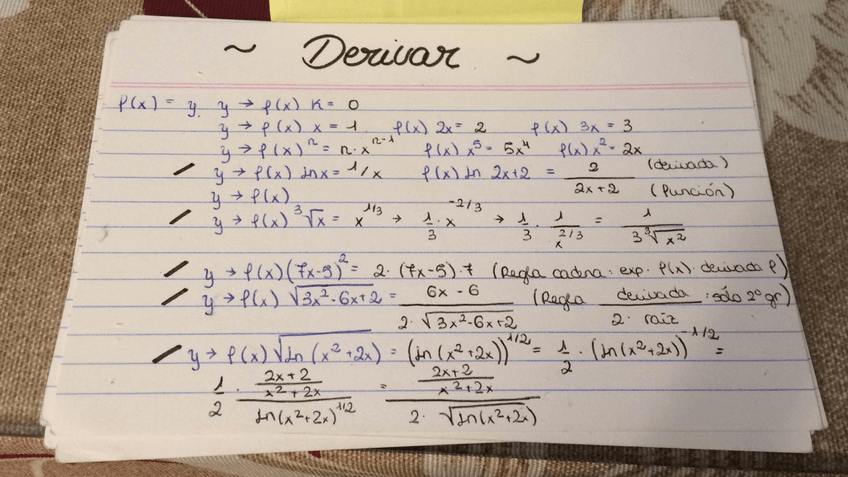 ~ Derivar ~
f(x) = y, y → f(x) K = 0
y → f(x) x = 1 f(x) 2x = 2 f(x) 3x = 3
y → f(x)ⁿ = n·xⁿ⁻¹ f(x) x⁵ = 5x⁴ f(x) x² = 2x
y → f(x) lnx = 1/x f(x) ln 2x+2 = 2/(2x+2) (derivada) (función)
y → f(x)
y → f(x) ³√x = x^1/3 → 1/3 · x^-2/3 → 1/3 · 1/x^2/3 = 1/(3 ³√x²)
y → f(x) (7x-5)² = 2·(7x-5)·7 (Regla cadena: exp. f(x). derivada f)
y → f(x) √(3x²-6x+2) = (6x-6)/(2·√(3x²-6x+2)) (Regla derivada/(2·raíz) : sólo 2º gr)
y → f(x) √(ln(x²+2x)) = (ln(x²+2x))^1/2 = 1/2 · (ln(x²+2x))^-1/2 =
1/2 · ((2x+2)/(x²+2x))/(ln(x²+2x)^1/2) = ((2x+2)/(x²+2x))/(2·√(ln(x²+2x)))